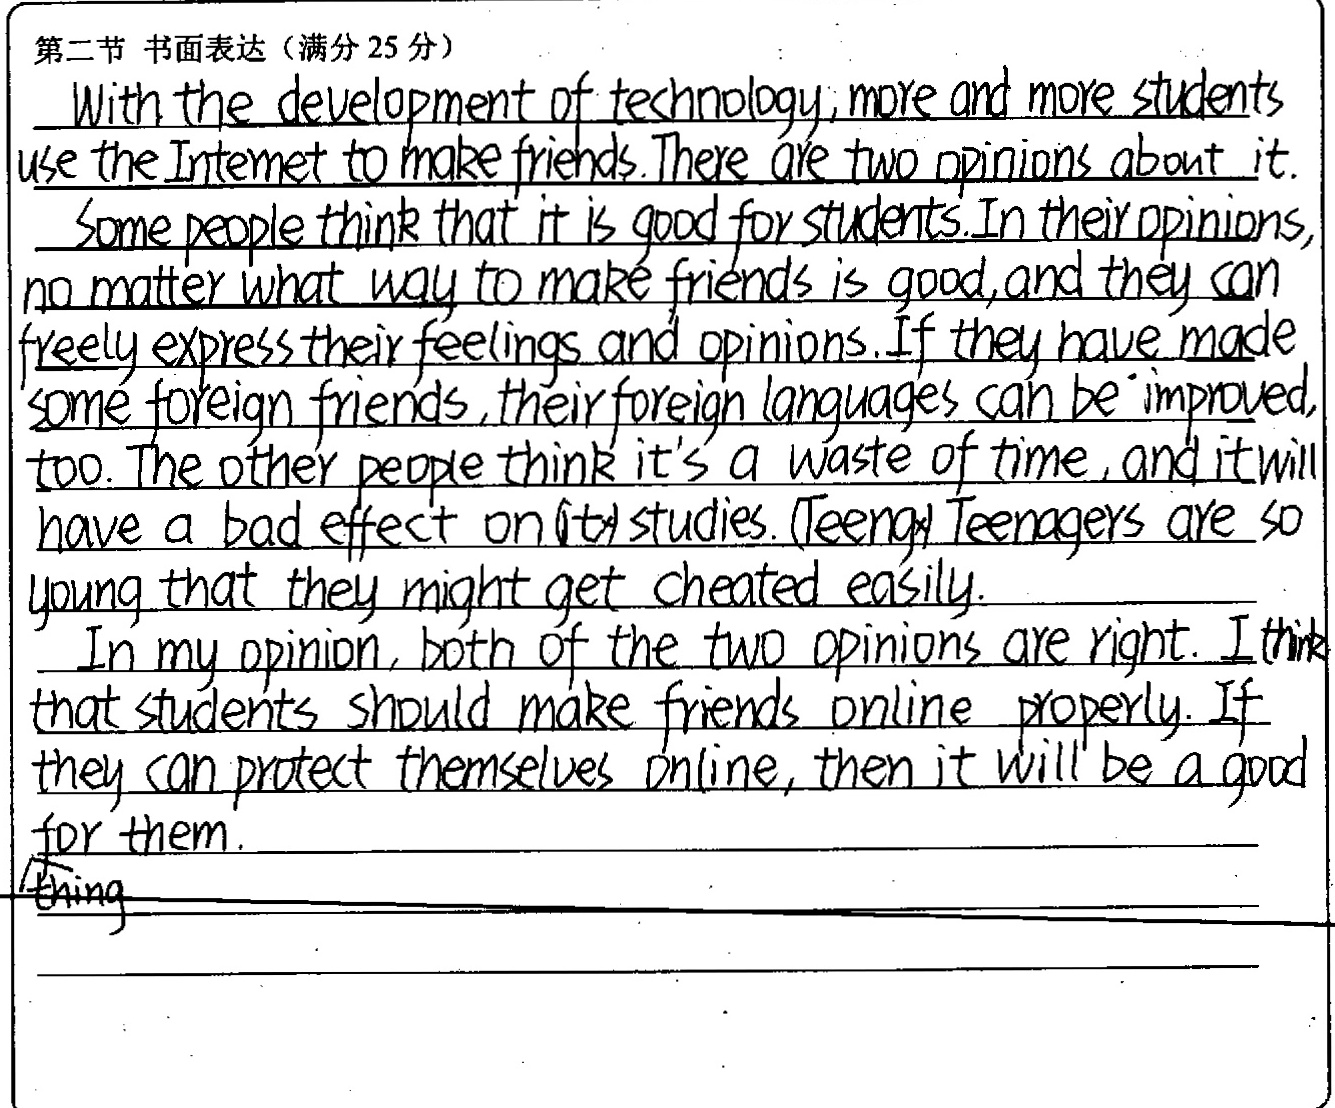 第二节 书面表达（满分 25 分）
With the development of technology, more and more students
use the Internet to make friends. There are two opinions about it.
Some people think that it is good for students. In their opinions,
no matter what way to make friends is good, and they can
freely express their feelings and opinions. If they have made
some foreign friends, their foreign languages can be improved,
too. The other people think it's a waste of time, and it will
have a bad effect on (it×) studies. (Teeng×) Teenagers are so
young that they might get cheated easily.
In my opinion, both of the two opinions are right. I think
that students should make friends online properly. If
they can protect themselves online, then it will be a good
for them.
thing